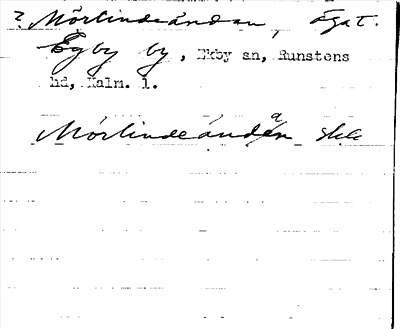 ? Mörlindeändan, ägat.
Egby by, Ekby sn, Runstens
hd, Kalm. l.
Mörlindeändan